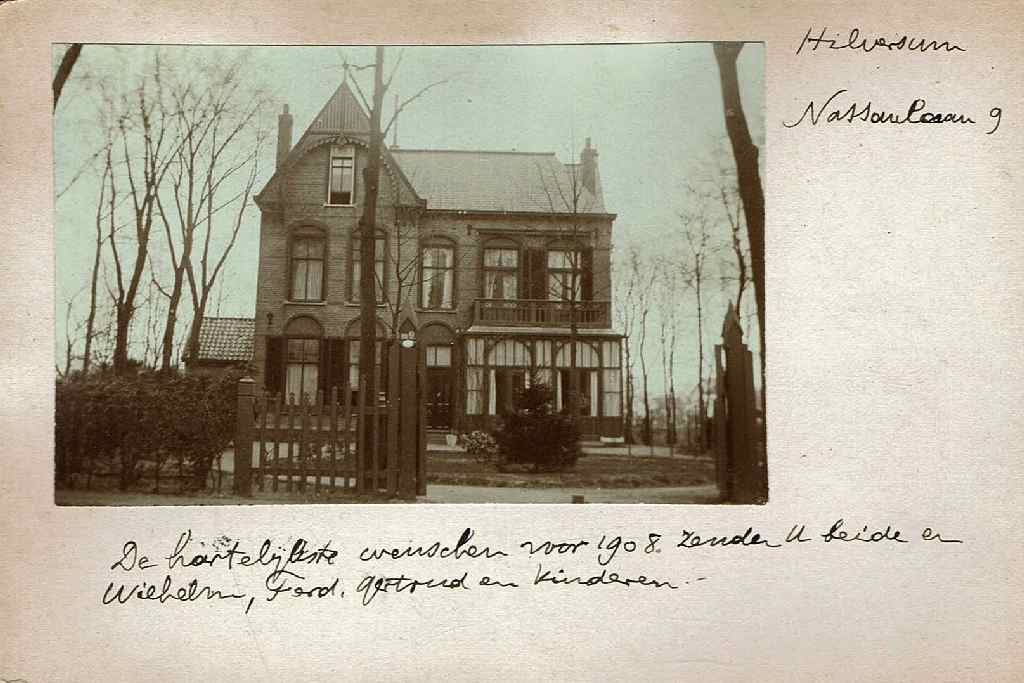 Hilversum
Nassaulaan 9
De hartelijkste wenschen voor 1908. zenden U beide en
Wilhelm, Ferd. Gertrud en Kinderen.-